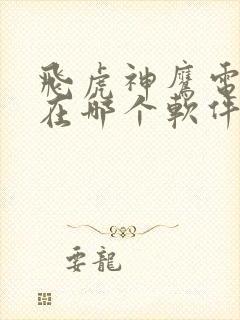 飛虎神鷹電
在哪个軟件
要龍